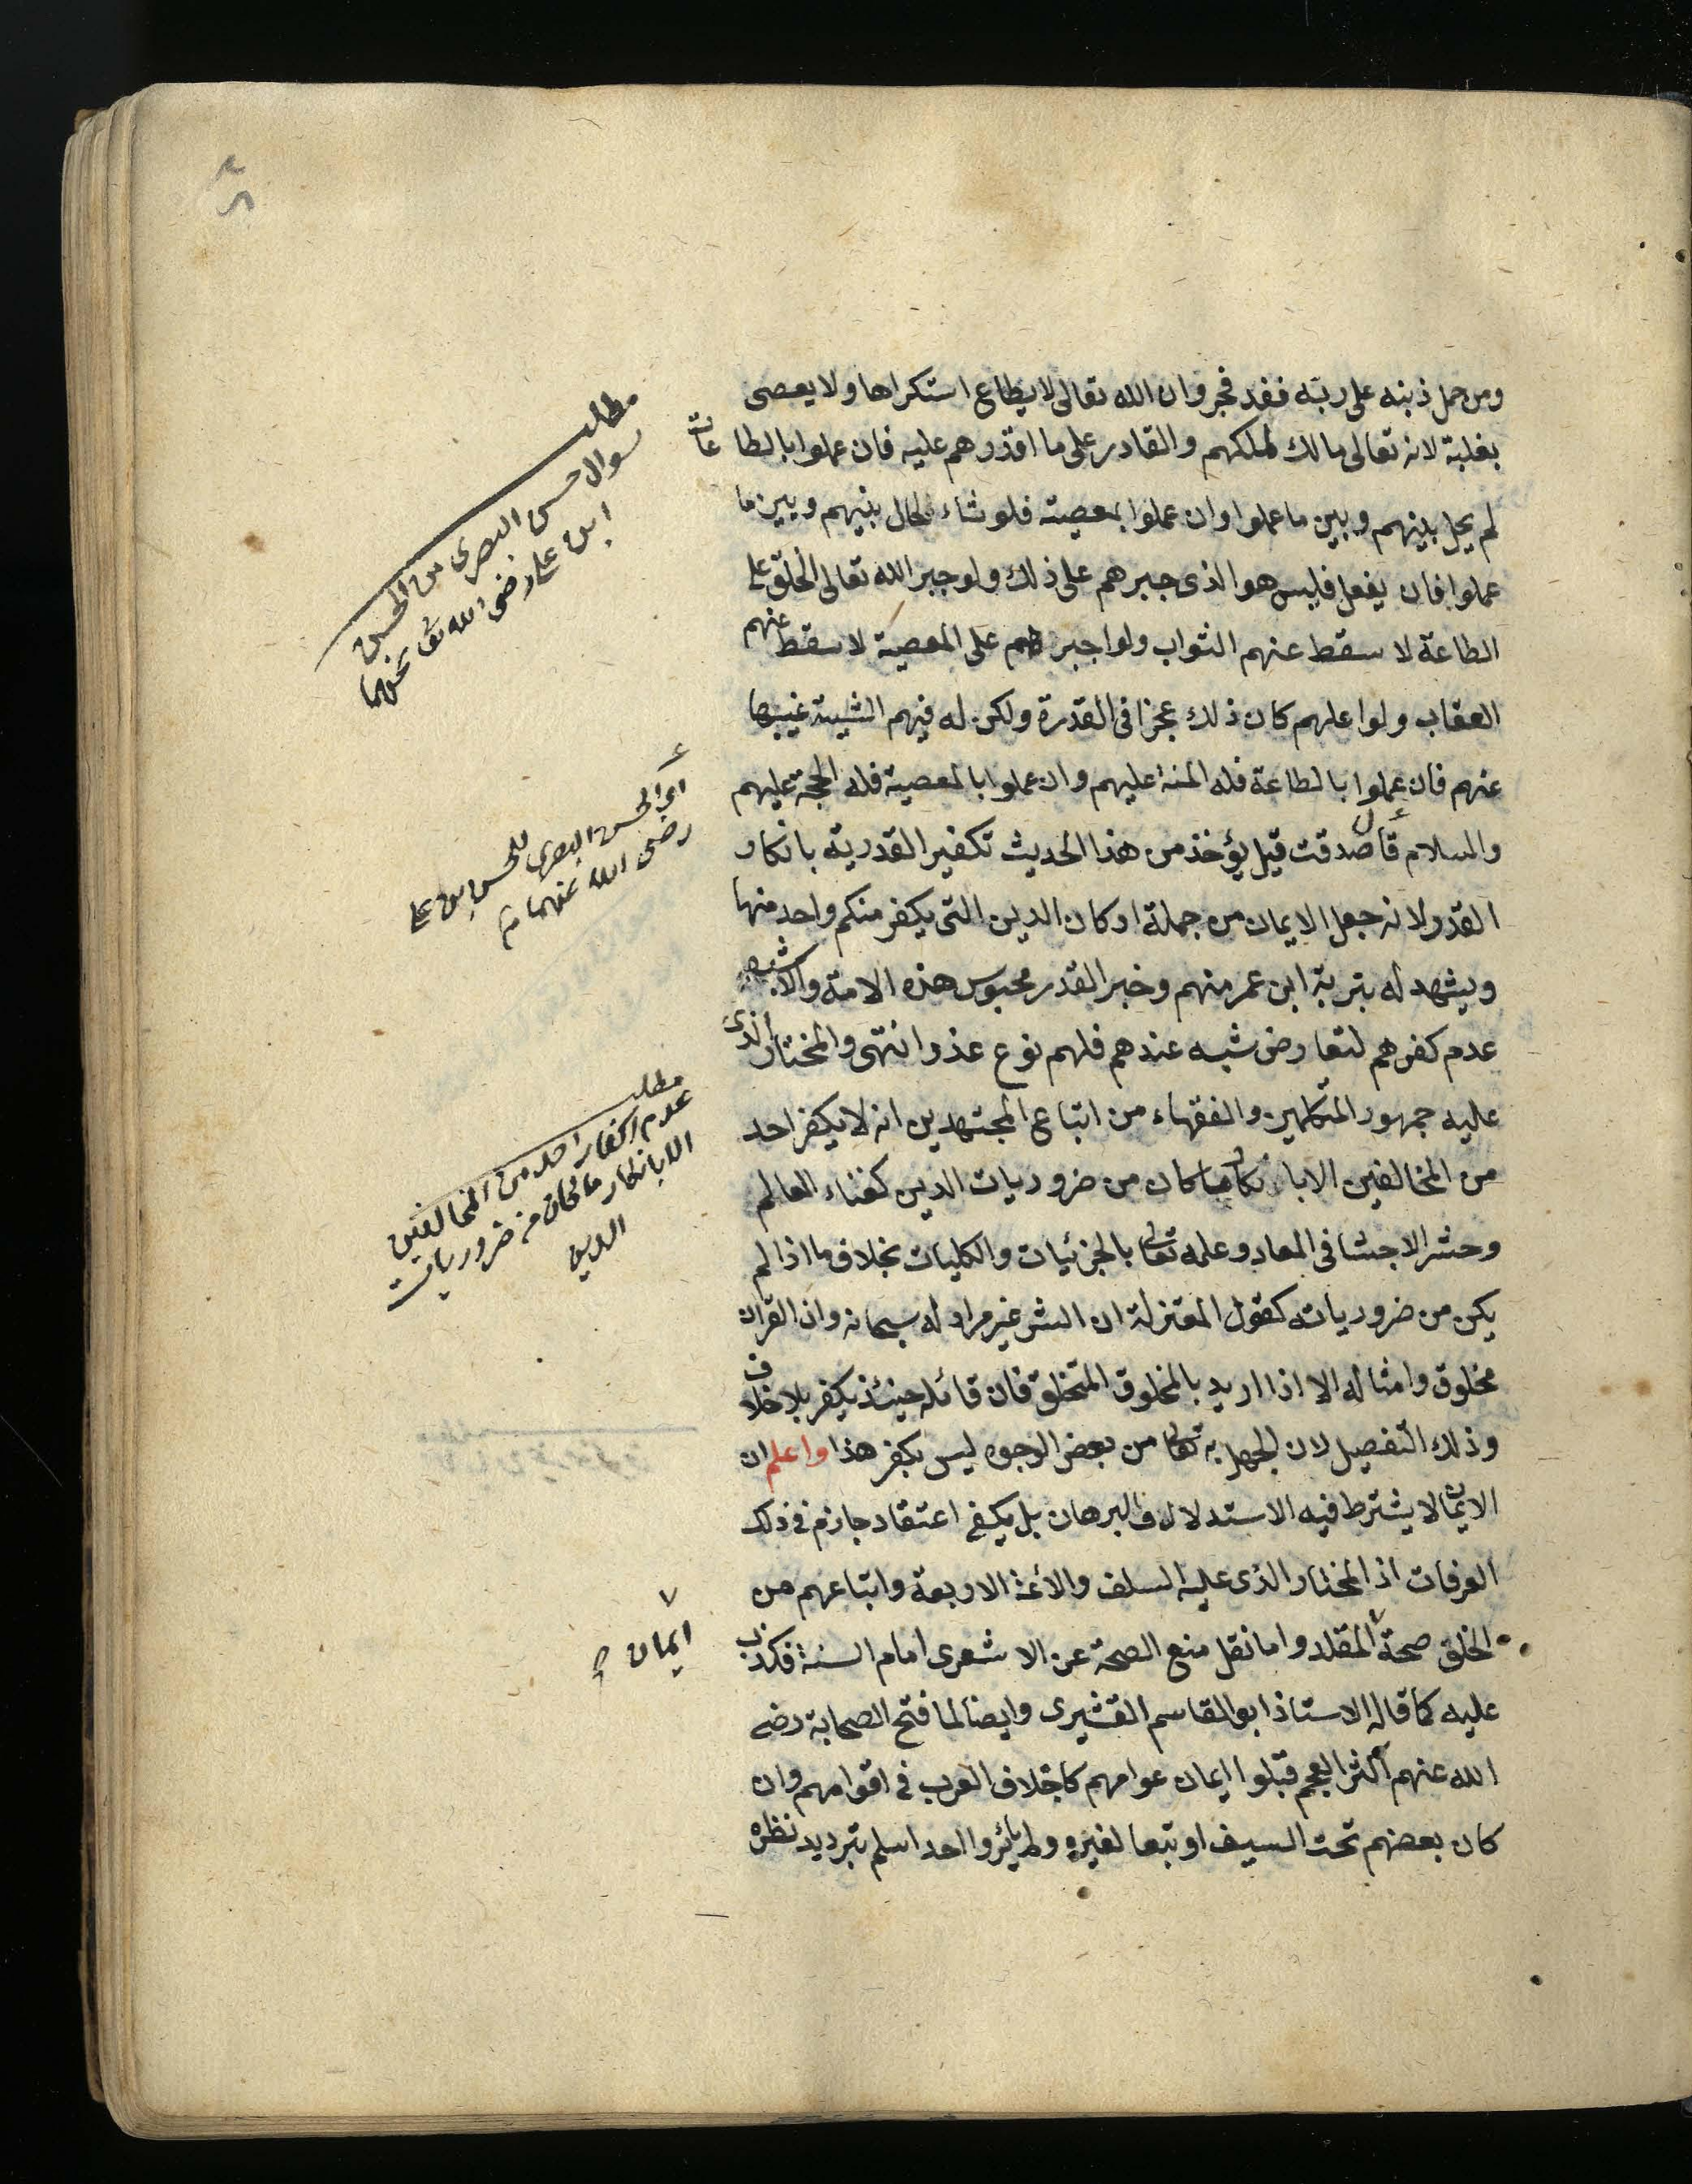 ومن حمل ذنبه على ربّه فقد فجر وان الله تعالى لا يطاع استكراها ولا يعصى
بغلبة لانه تعالى مالك لملكهم والقادر على ما اقدرهم عليه فان عملوا بالطاعات
لم يحل بينهم وبين ما عملوا وان عملوا بمعصية فلو شاء لحال بينهم وبين ما
عملوا فان يفعل فليس هو الذى جبرهم على ذلك ولو جبر الله تعالى الخلق على
الطاعة لا سقط عنهم الثواب ولو اجبرهم على المعصية لا سقط عنهم
العقاب ولو اهلهم كان ذلك عجزا فى القدرة ولكن له فيهم المشيية غيبها
عنهم فان عملوا بالطاعة فله المنة عليهم وان عملوا بالمعصية فله الحجة عليهم
والسلام قال صدقت قيل يؤخذ من هذا الحديث تكفير القدرية بانكار
القدر لانه جعل الايمان من جملة اركان الدين التى يكفر منكر واحد منها
ويشهد له بتربة ابن عمر منهم وخبر القدر مجوس هذه الامة والاشبه
عدم كفرهم لتعارض شبه عندهم فلهم نوع عذر انتهى والمختار الذى
عليه جمهور المتكلمين والفقهاء من اتباع المجتهدين انه لا يكفر احد
من المخالفين الا بانكار ما كان من ضروريات الدين كفناء العالم
وحشر الاجسا فى المعاد وعلمه تعالى بالجزئيات والكليات بخلاف ما اذا لم
يكن من ضرورياته كقول المعتزلة ان الشر غير مراد له سبحانه وان القران
مخلوق وامثاله الا اذا اريد بالمخلوق المختلق فان قائله حينئذ يكفر بلا خلاف
وذلك التفصيل لان الجهل به تعالى من بعض الوجوه ليس بكفر هذا واعلم ان
الايمان لا يشترط فيه الاستدلال والبرهان بل يكفى اعتقاد جازم فى ذلك
العرفات اذ المختار الذى عليه السلف والائمة الاربعة واتباعهم من
الخلق صحة المقلد واما نقل منع الصحة عن الاشعرى امام السنة فكذب
عليه كما قاله الاستاذ ابو القاسم القشيرى وايضا لما فتح الصحابة رضى
الله عنهم اكثر العجم قبلوا ايمان عوامهم كاجلاف العرب فى اقوامهم وان
كان بعضهم تحت السيف او تبعا لغيره ولم يأمروا احد اسلم بترديد نظره
مطلب
سوال حسن البصرى من الحسن
ابن على رضى الله تع عنهما
اى الحسن البصرى للحسن ابن على
رضى الله عنهما م
مطلب
عدم اكفار احد من المخالفين
الا بانكار ما كان من ضروريات
الدين
٧
ايمان